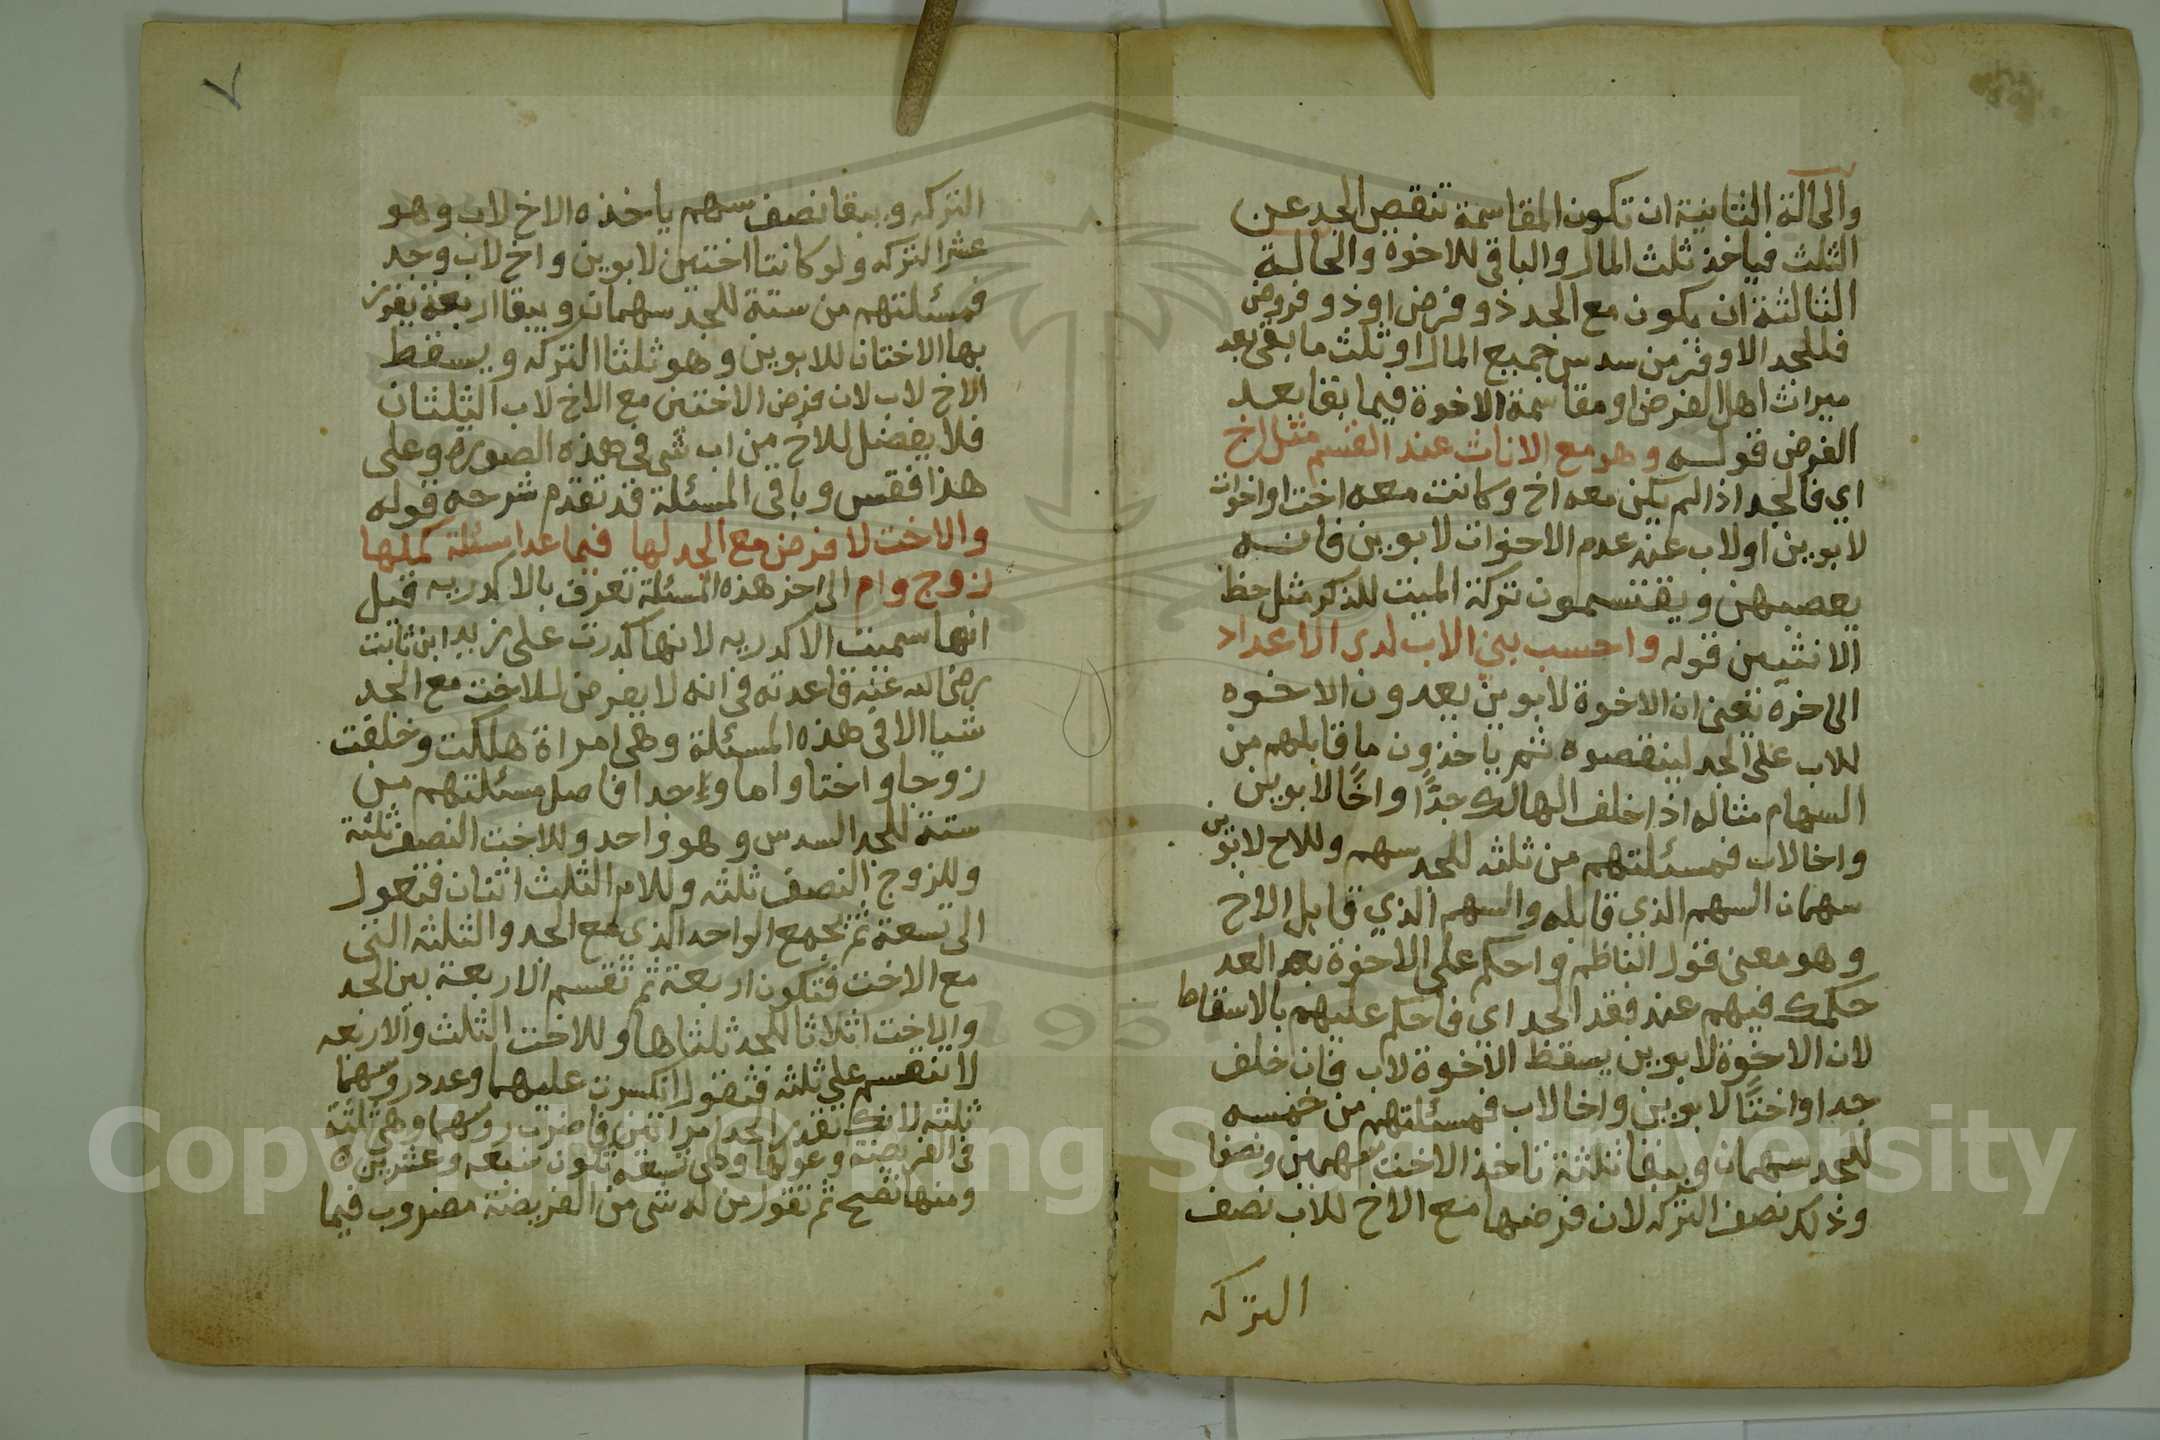 والحالة الثانية ان تكون المقاسمة تنقص الجد عن
الثلث فياخذ ثلث المال والباقي للاخوة والحالة
الثالثة ان يكون مع الجد ذو فرض او ذو فروض
فللجد الاوفر من سدس جميع المال او ثلث ما بقي بعد
ميراث اهل الفرض او مقاسمة الاخوة فيما بقا بعد
الفرض قوله وهو مع الاناث عند القسم مثل اخ
اي فالجد اذا لم يكن معه اخ وكانت معه اخت او اخوات
لابوين او لاب عند عدم الاخوات لابوين فانه
يعصبهن ويقتسمون تركة الميت للذكر مثل حظ
الانثيين قوله واحسب بني الاب لدى الاعداد
الى اخره نعني ان الاخوة لابوين يعدون الاخوه
للاب على الجد لينقصوه ثم ياخذون ما قابلهم من
السهام مثاله اذا خلف الهالك جدًا واخًا لابوين
واخا لاب فمسئلتهم من ثلثه للجد سهم وللاخ لابوين
سهمان السهم الذي قابله والسهم الذي قابل الاخ
وهو معنى قول الناظم واحكم على الاخوة بعد العد
حكمك فيهم عند فقد الجد اي فاحكم عليهم بالاسقاط
لان الاخوة لابوين يسقط الاخوة لاب فان خلف
جدا واختًا لابوين واخا لاب فمسئلتهم من خمسه
للجد سهمان ويبقا ثلثة تاخذ الاخت سهمين ونصفا
وذلك نصف التركه لان فرضها مع الاخ للاب نصف
التركه
٧
التركه ويبقا نصف سهم ياخذه الاخ لاب وهو
عشر التركه ولو كانتا اختين لابوين واخ لاب وجد
فمسئلتهم من ستة للجد سهمان ويبقا اربعة يفوز
بها الاختان للابوين وهو ثلثا التركه ويسقط
الاخ لاب لان فرض الاختين مع الاخ لاب الثلثان
فلا يفضل للاخ من اب شي في هذه الصوره وعلى
هذا فقس وباقي المسئلة قد تقدم شرحه قوله
والاخت لا فرض مع الجد لها فيما عدا مسئلة كملها
زوج وام الى اخر هذه المسئلة تعرف بالاكدريه قيل
انها سميت الاكدريه لانها كدرت على زيد ابن ثابت
رضي الله عنه قاعدته في انه لا يفرض للاخت مع الجد
شيا الا في هذه المسئلة وهي امراة هلكت وخلفت
زوجا واختا واما وجدا فاصل مسئلتهم من
ستة للجد السدس وهو واحد وللاخت النصف ثلثة
وللزوج النصف ثلثه وللام الثلث اثنان فتعول
الى تسعة ثم يجمع الواحد الذي مع الجد والثلثه التي
مع الاخت فتكون اربعة ثم تقسم الاربعة بين الجد
والاخت اثلاثا للجد ثلثاها وللاخت الثلث والاربعه
لا تنقسم على ثلثه فتقول انكسرت عليهما وعدد روسهما
ثلثه لانك تقدر الجد امراتين فاضرب روسهما وهي ثلثة
في الفريضة وعولها وهي تسعة تكون سبعه وعشرين ه
ومنها تصح ثم تقول من له شي من الفريضة مضروب فيما
Copyright © King Saud University
1957